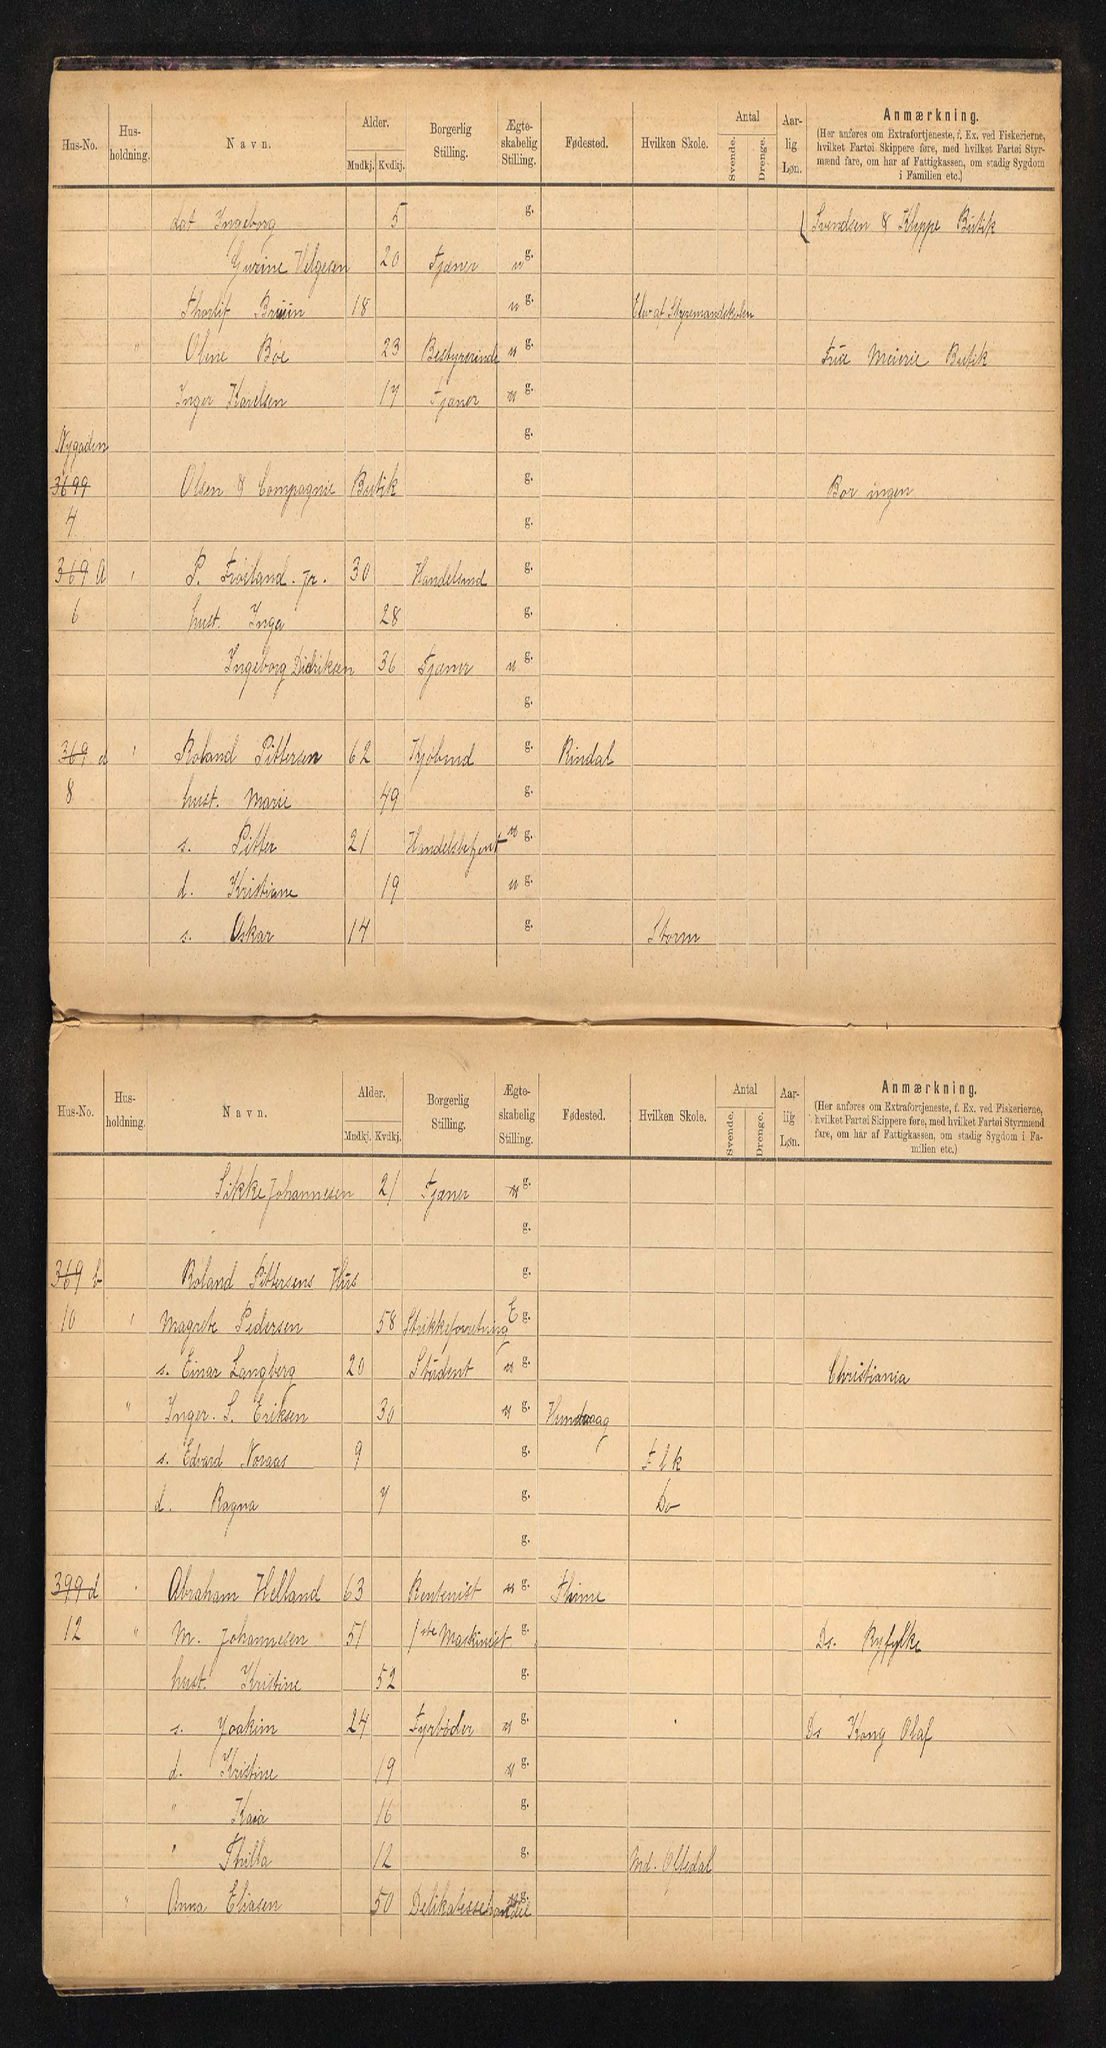 Hus-No. Hus-holdning. Navn. Alder. Mndkj. Kvdkj. Borgerlig Stilling. Ægte-skabelig Stilling. Fødested. Hvilken Skole. Antal Svende. Drenge. Aar-lig Løn. Anmærkning. (Her anføres om Extrafortjeneste, f. Ex. ved Fiskerierne, hvilket Partøi Skippere føre, med hvilket Partøi Styr-mænd fare, om har af Fattigkassen, om stadig Sygdom i Familien etc.)
dat Ingeborg 5 g. Svendsen & Kleppe Butik
Gurine Helgesen 20 Tjæner u g.
Thorlif Bruun 18 u g. Elev af Styrmandskolen
" Oline Boe 23 Bestyrerinde u g. Meieri Butik
Inger Karelsen 17 Tjæner u g.
Nygaden g.
3699 Olsen & Compagnie Butik g. Bor ingen
4 g.
369 a ' P. Frøiland. jr. 30 Handelsmd g.
6 hust. Inga 28 g.
Ingeborg Didriksen 36 Tjæner u g.
g.
369 d ' Roland Pittersen 62 Kjøbmd g. Rindal
8 hust. Marie 49 g.
s. Pitter 21 Handelsbetjent u g.
d. Kristiane 19 u g.
s. Oskar 14 g. Storm
Hus-No. Hus-holdning. Navn. Alder. Mndkj. Kvdkj. Borgerlig Stilling. Ægte-skabelig Stilling. Fødested. Hvilken Skole. Antal Svende. Drenge. Aar-lig Løn. Anmærkning. (Her anføres om Extrafortjeneste, f. Ex. ved Fiskerierne, hvilket Partøi Skippere føre, med hvilket Partøi Styrmænd fare, om har af Fattigkassen, om stadig Sygdom i Fa-milien etc.)
Sikke Johannesen 21 Tjæner u g.
g.
369 b Roland Pittersens Hus g.
10 ' Magrete Pedersen 58 Strikkeforretning E g.
s. Einar Langberg 20 Student u g. Christiania
" Inger. S. Eriksen 30 u g. Hundvaag
s. Edvard Noraas 9 g. Flk
d. Ragna 7 g. Do
g.
399 d ' Abraham Helland 63 Rentenist u g. Thime
12 " M. Johannesen 51 1ste Maskinist g. Ds. Ryfylke
hust. Kristine 52 g.
s. Joakim 24 Fyrbøder u g. Ds Kong Olaf
d. Kristine 19 u g.
" Kaia 16 g.
" Thilla 12 g. Md. Oltedal
" Anna Eliasen 50 Delikatessehandel u g.